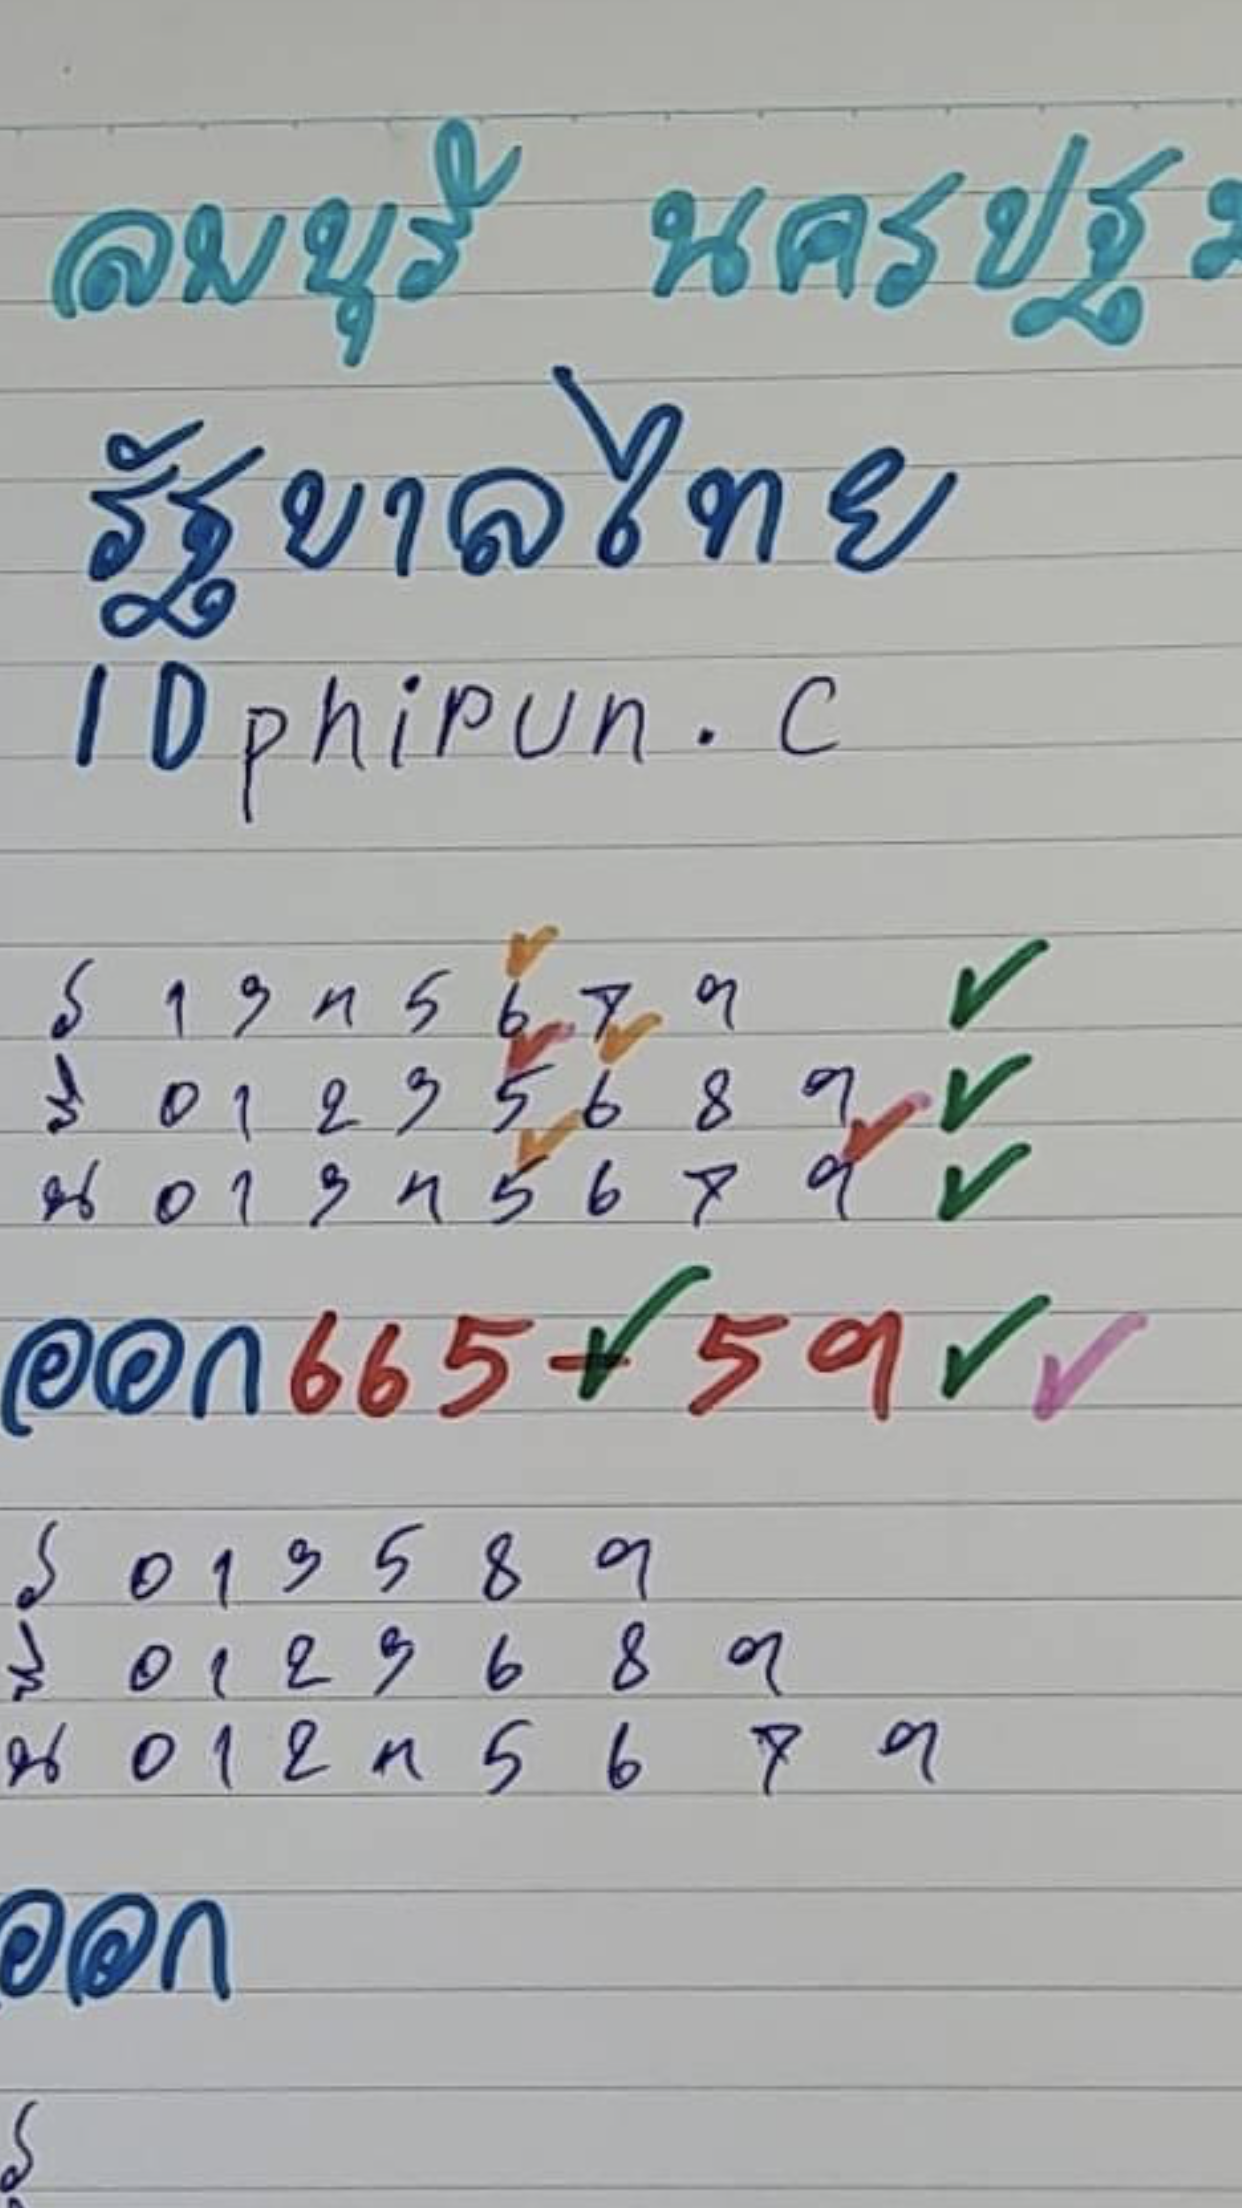 ลมบุรี นครปฐม
รัฐบาลไทย
ID phipun.c
ร 1 3 4 5 6 7 9
สิ 0 1 2 3 5 6 8 9
น 0 1 3 4 5 6 7 9
ออก 665 - 59
ร 0 1 3 5 8 9
สิ 0 1 2 3 6 8 9
น 0 1 2 4 5 6 7 9
ออก
ร